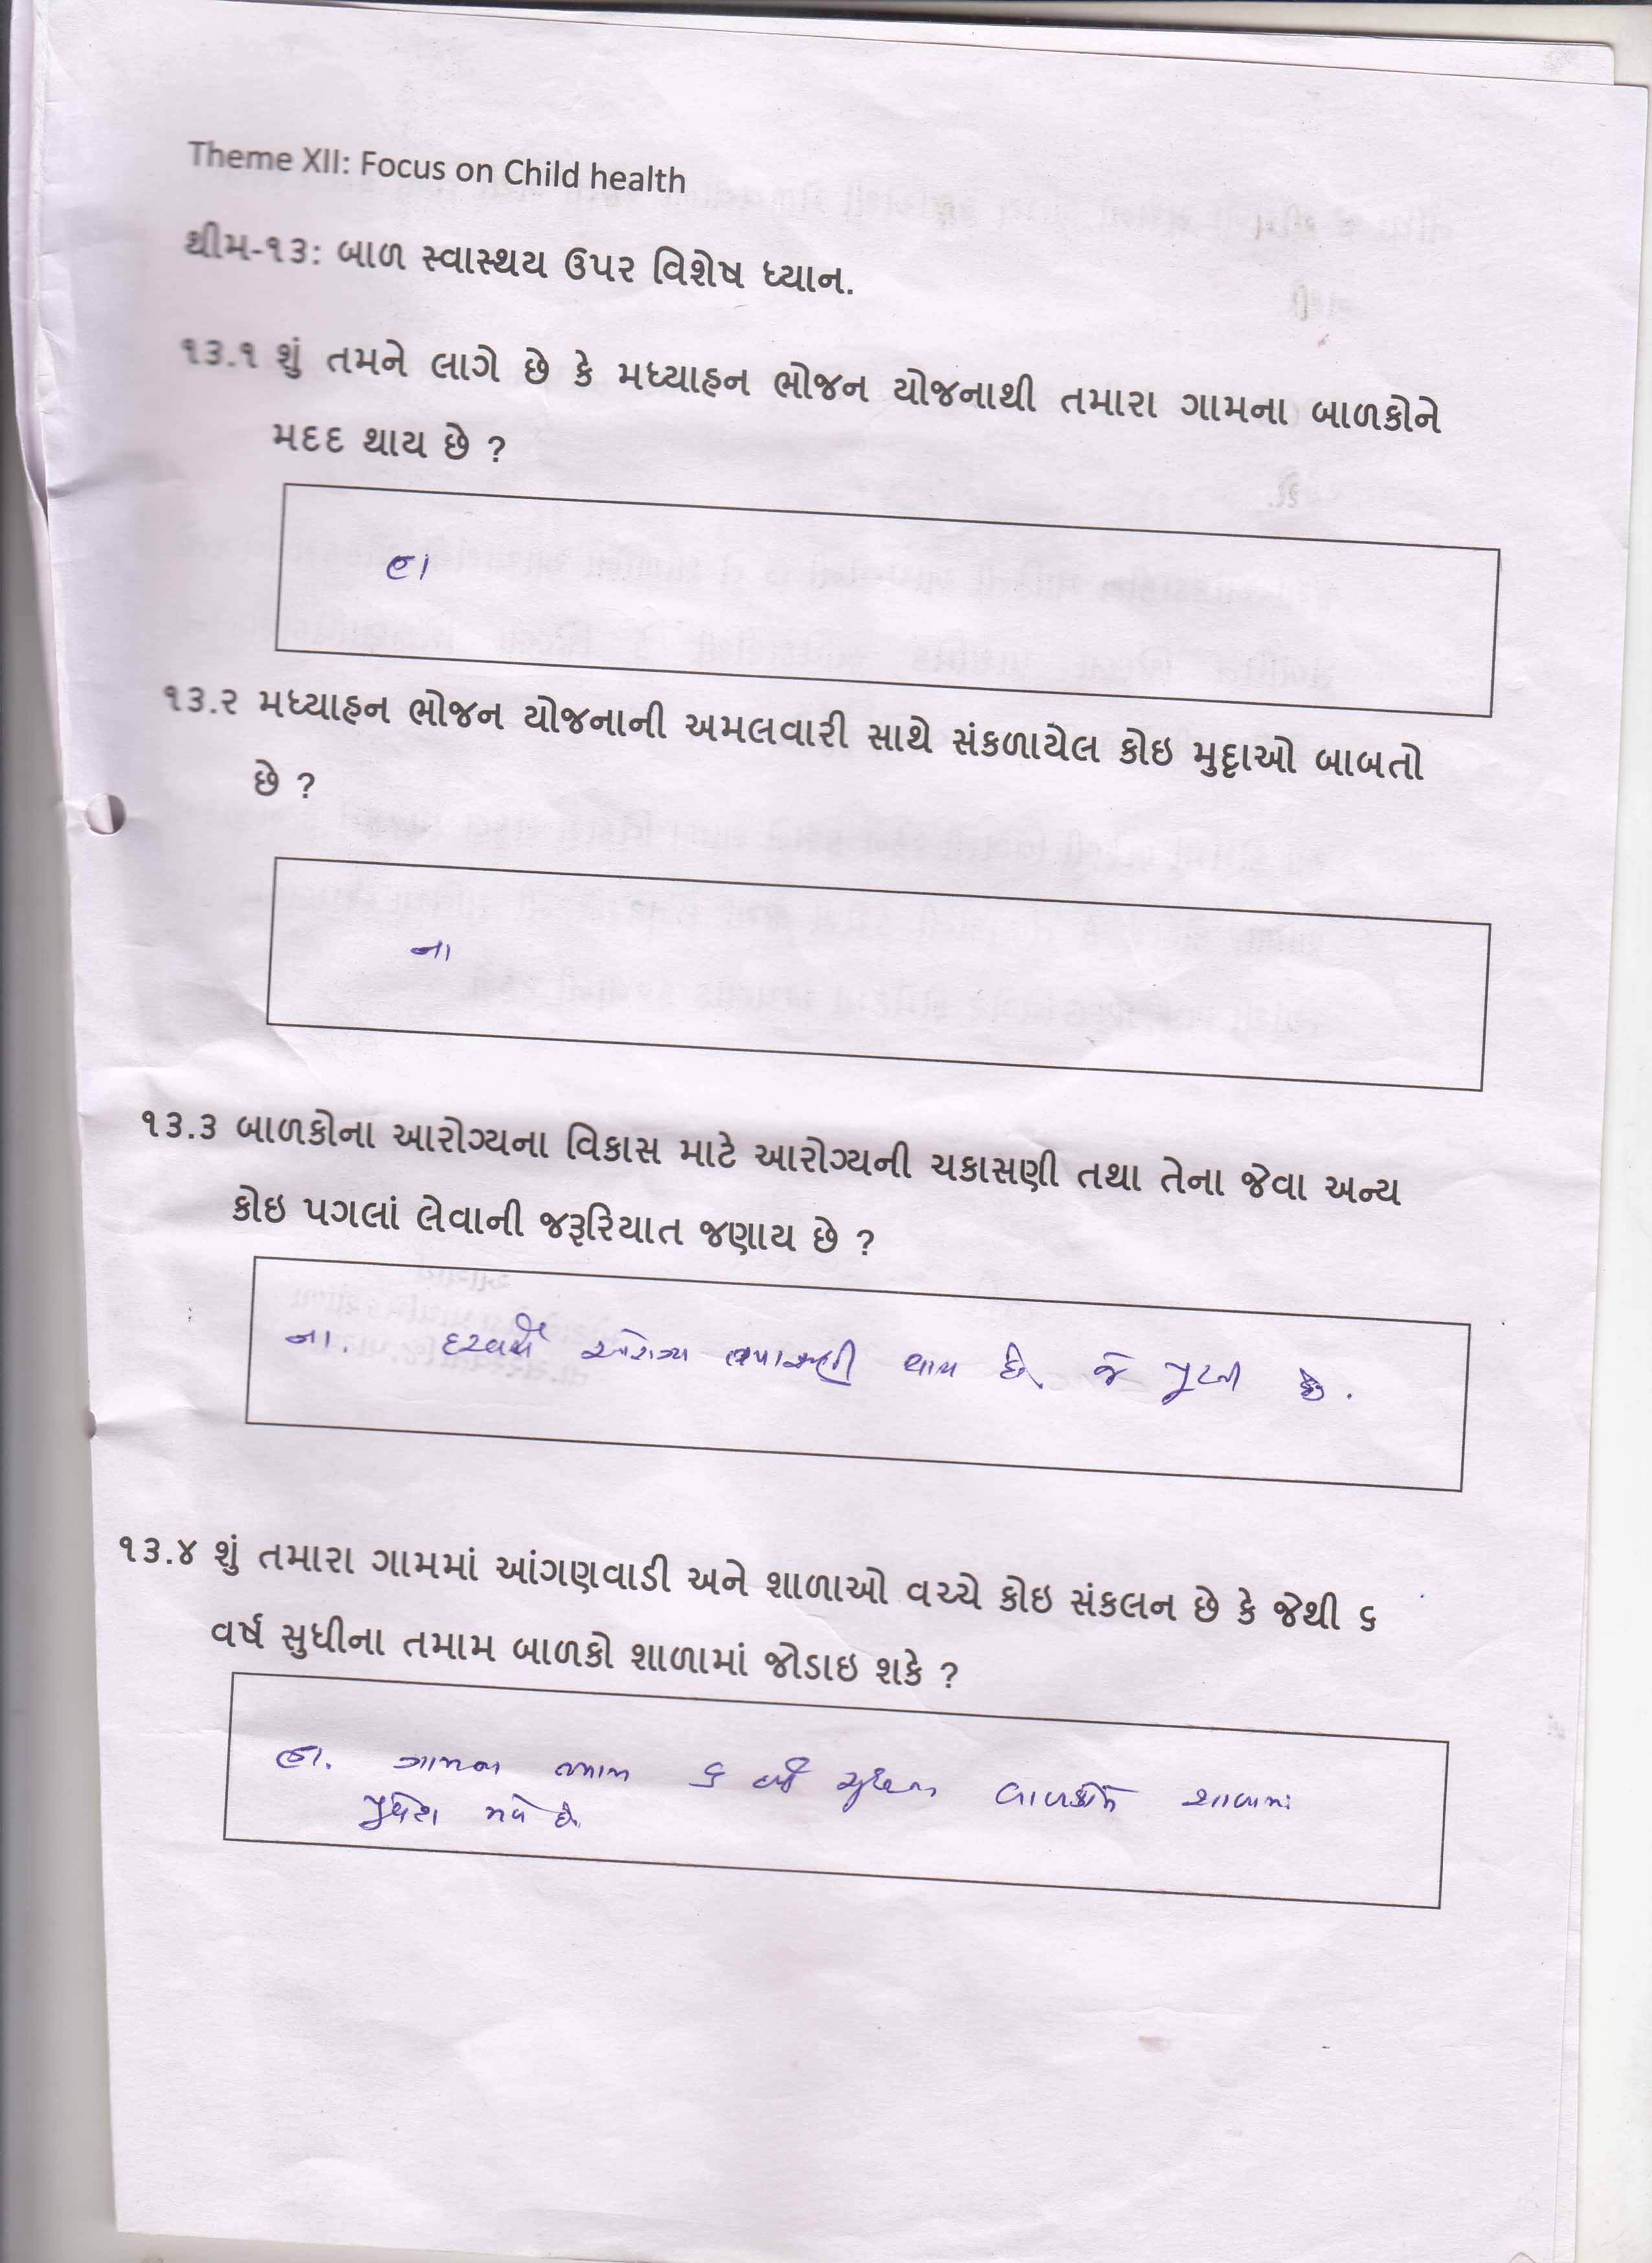 Theme XII: Focus on Child health
થીમ-૧૩: બાળ સ્વાસ્થય ઉપર વિશેષ ધ્યાન.
૧૩.૧ શું તમને લાગે છે કે મધ્યાહન ભોજન યોજનાથી તમારા ગામના બાળકોને
મદદ થાય છે ?
હા
૧૩.૨ મધ્યાહન ભોજન યોજનાની અમલવારી સાથે સંકળાયેલ કોઇ મુદ્દાઓ બાબતો
છે ?
ના
૧૩.૩ બાળકોના આરોગ્યના વિકાસ માટે આરોગ્યની ચકાસણી તથા તેના જેવા અન્ય
કોઇ પગલાં લેવાની જરૂરિયાત જણાય છે ?
ના. દરવર્ષે આરોગ્ય તપાસણી થાય છે. જે પુરતી છે.
૧૩.૪ શું તમારા ગામમાં આંગણવાડી અને શાળાઓ વચ્ચે કોઇ સંકલન છે કે જેથી ૬
વર્ષ સુધીના તમામ બાળકો શાળામાં જોડાઇ શકે ?
હા. ગામના તમામ ૬ વર્ષ સુધીના બાળકોને શાળામાં
પ્રવેશ મળે છે.